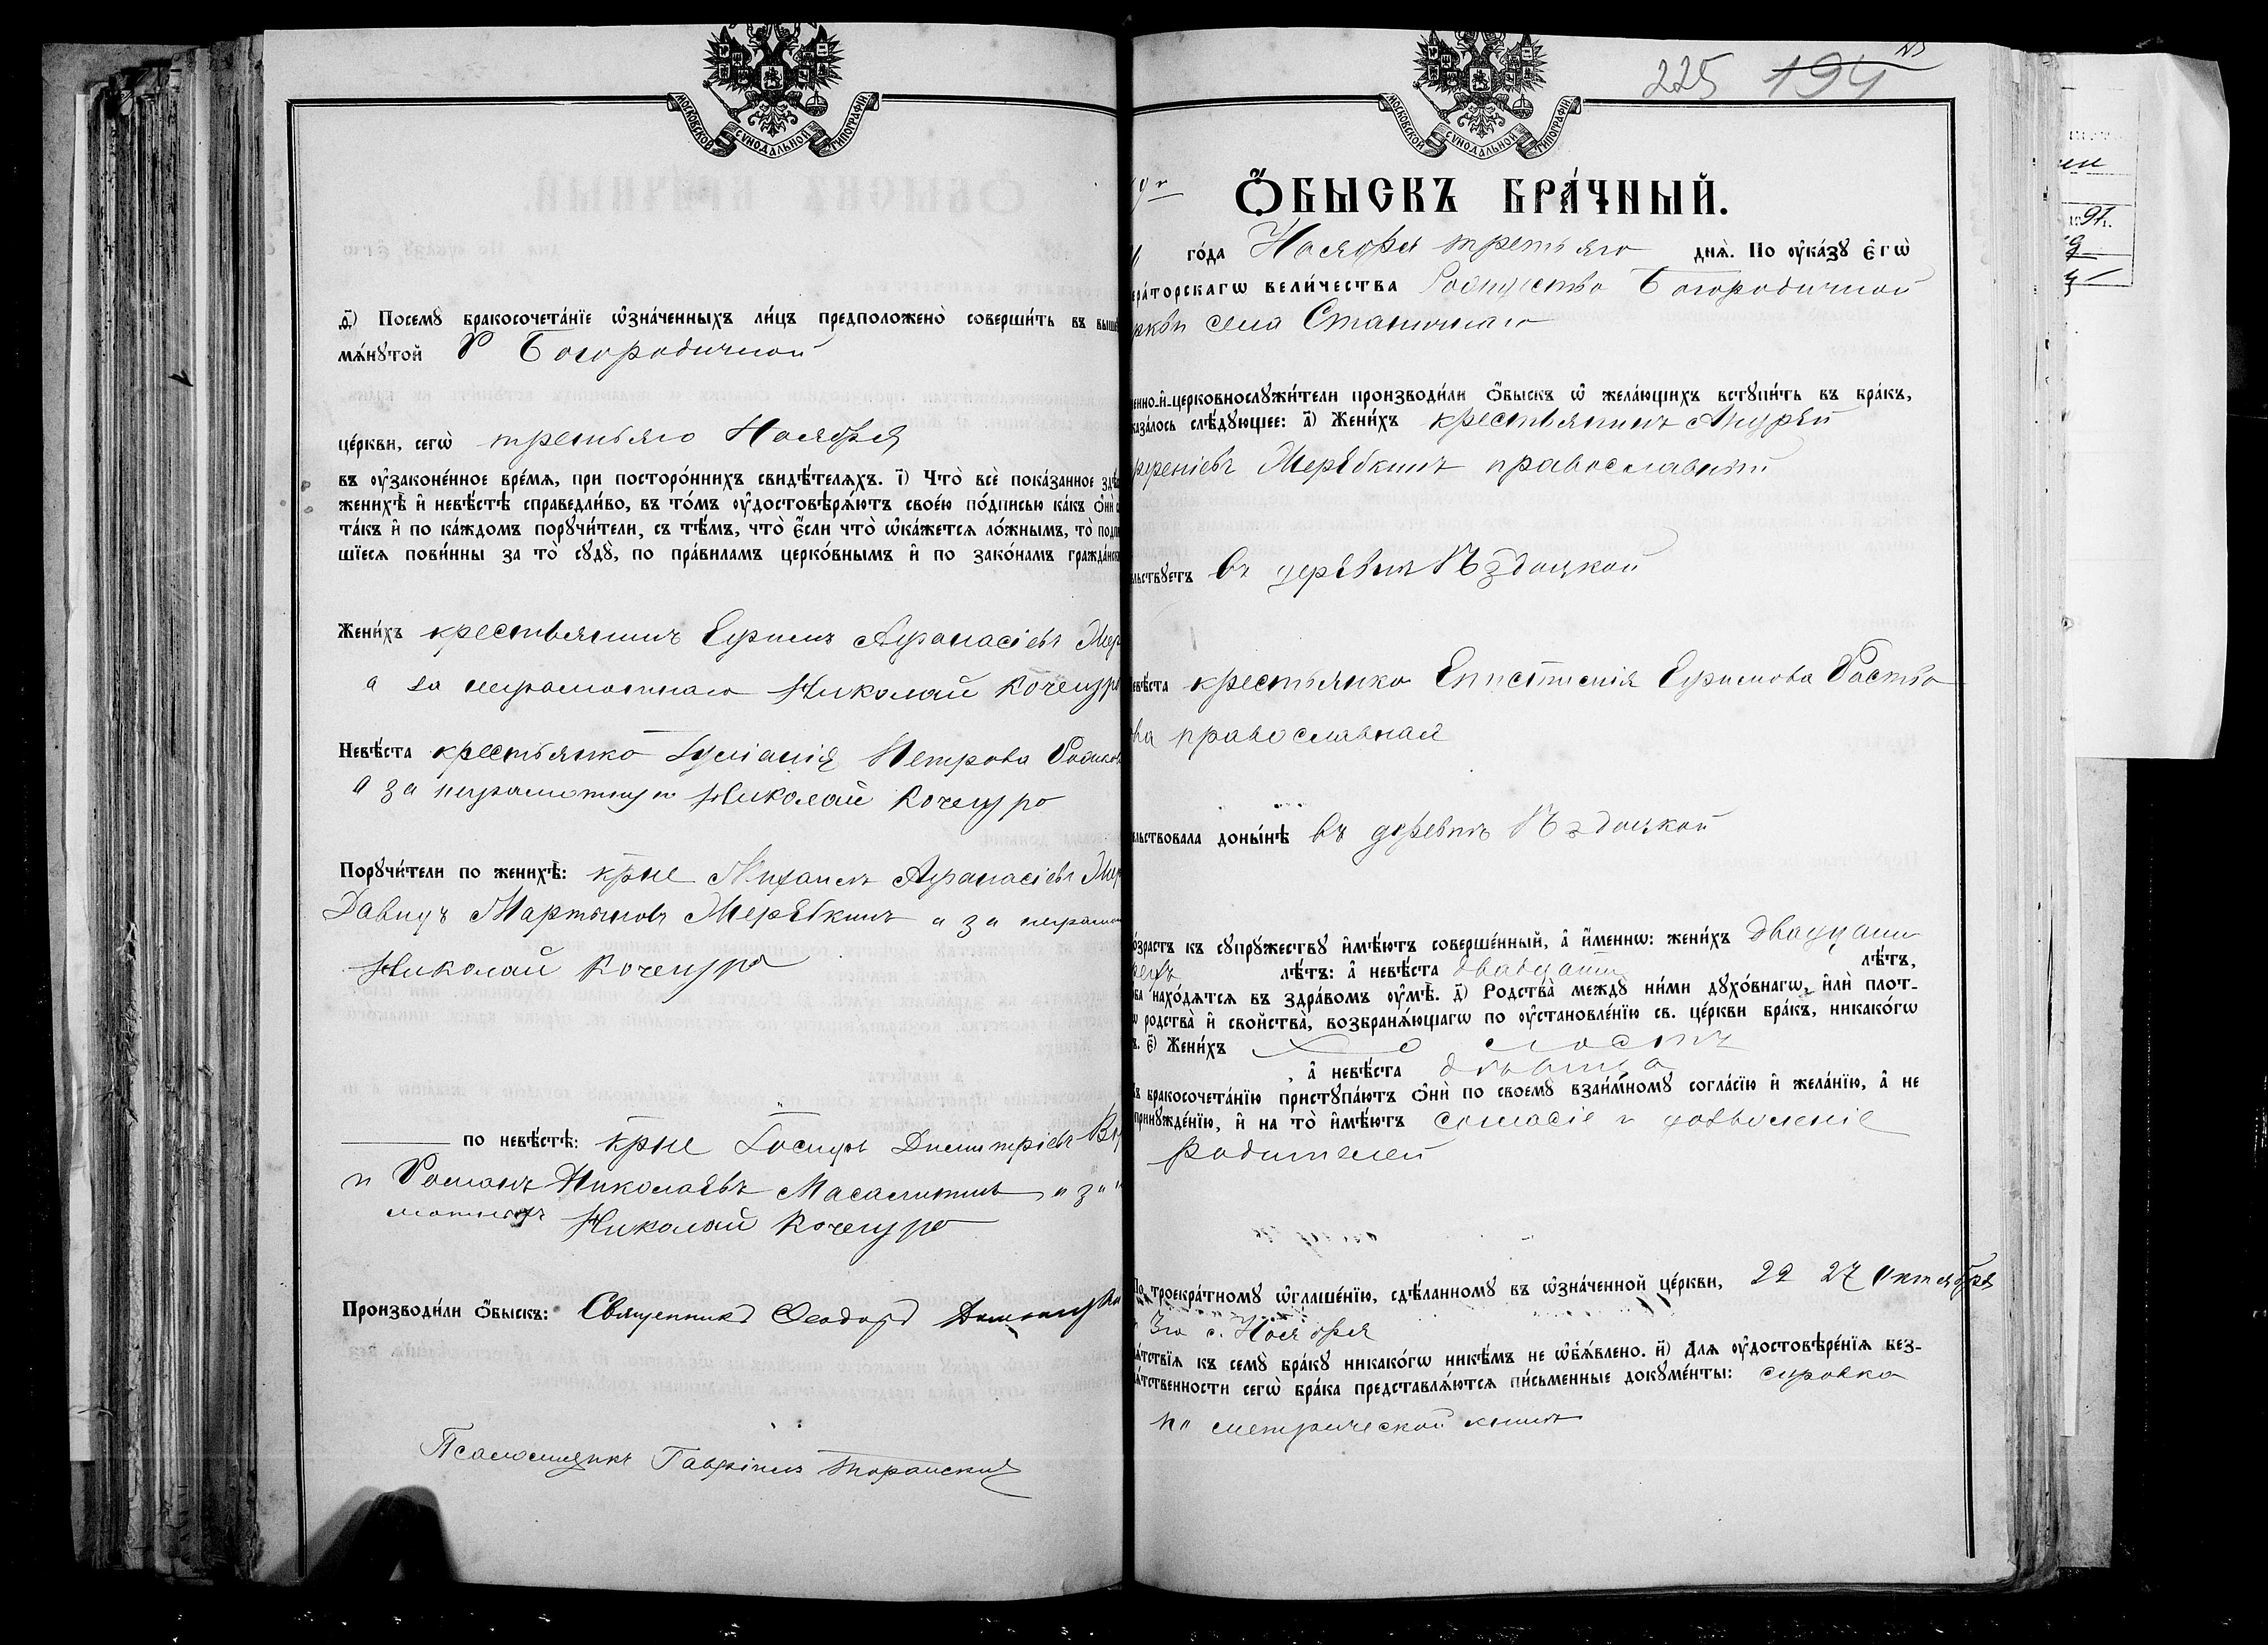 МОСКОВСКОЙ СѴНОДАЛЬНОЙ ТИПОГРАФІИ
ѳ҃) Посемꙋ бракосочета́нїе ѡ҆зна́ченныхъ ли́цъ предположено̀ соверши́ть въ выше
мѧ́нꙋтой Р Богородичной
це́ркви, сегѡ̀ третьяго Ноября
въ ᲂу҆зако́ненное вре́мѧ, при посторо́ннихъ свидѣ́телѧхъ. і҃) Что̀ всѐ пока́занное здѣ
женихѣ̀ и҆ невѣ́стѣ справедли́во, въ то́мъ ᲂу҆достовѣрѧ́ютъ свое́ю по́дписью ка́къ ѻ҆нѝ с
та́къ и҆ по ка́ждомъ порꙋчи́тели, съ тѣ́мъ, что̀ є҆́сли что̀ ѡ҆ка́жетсѧ ло́жнымъ, то̀ подпи
шїесѧ пови́нны за то̀ сꙋдꙋ̀, по пра́виламъ церко́внымъ и҆ по зако́намъ гражда́нск
Жени́хъ крестьянинъ Ефимъ Афанасіевъ Мер
а за неграмотнаго Николай Кочегуро
Невѣ́ста крестьянка Іуліанія Петрова
а за неграмотную Николай Кочегуро
Порꙋчи́тели по женихѣ̀: крне Михаилъ Афанасіевъ Мер
Давидъ Мартыновъ Мерѣбкинъ а за неграмо
Николай Кочегуро
по невѣ́стѣ: крне Іосифъ Димитріевъ
и Романъ Николаевъ а за
мотныхъ Николай Кочегуро
Производи́ли ѻ҆́быскъ: Священникъ Ѳеодоръ
Псаломщикъ Гавріилъ
МОСКОВСКОЙ СѴНОДАЛЬНОЙ ТИПОГРАФІИ
225 194
Ѻ҆́БЫСКЪ БРА́ЧНЫЙ.
го́да Ноября третьяго днѧ̀. По ᲂу҆ка́зꙋ є҆гѡ̀
ера́торскагѡ вели́чества Рождество Богородичной
ркви села Станичнаго
енно-и҆-церковнослꙋжи́тели производи́ли ѻ҆́быскъ ѡ҆ жела́ющихъ встꙋпи́ть въ бра́къ,
каза́лось слѣ́дꙋющее: а҃) Жени́хъ крестьянинъ Андрей
Мерѣбкинъ православный
льствꙋетъ въ деревнѣ
евѣ́ста крестьянка Епистимія Ефимова Раство
ва православная
льствовала доны́нѣ въ деревнѣ
о́зрастъ къ сꙋпрꙋжествꙋ и҆мѣ́ютъ соверше́нный, а҆ и҆́меннѡ: жени́хъ двадцати
лѣ́тъ: а҆ невѣ́ста двадцати лѣ́тъ,
ба нахо́дѧтсѧ въ здра́вомъ ᲂу҆мѣ̀. д҃) Родства̀ междꙋ ни́ми дꙋхо́внагѡ, и҆лѝ плот-
ѡ родства̀ и҆ свойства̀, возбранѧ́ющагѡ по ᲂу҆становле́нїю св. це́ркви бра́къ, никако́гѡ
ъ. є҃) Жени́хъ холостъ
, а҆ невѣ́ста дѣвица
Къ бракосочета́нїю пристꙋпа́ютъ ѻ҆нѝ по своемꙋ̀ взаи́мномꙋ согла́сїю и҆ жела́нїю, а҆ не
принꙋжде́нїю, и҆ на то̀ и҆мѣ́ютъ согласіе и дозволеніе
родителей
По троекра́тномꙋ ѡ҆глаше́нїю, сдѣ́ланномꙋ въ ѡ҆зна́ченной це́ркви, 22 27 Октября
3го с. Ноября
ѧ́тствїѧ къ семꙋ̀ бра́кꙋ никако́гѡ никѣ́мъ не ѡ҆б̾ѧ́влено. и҃) Длѧ ᲂу҆достовѣре́нїѧ без-
ѧ́тственности сегѡ̀ бра́ка представлѧ́ютсѧ пи́сьменные докꙋме́нты: справка
по метрической книгѣ